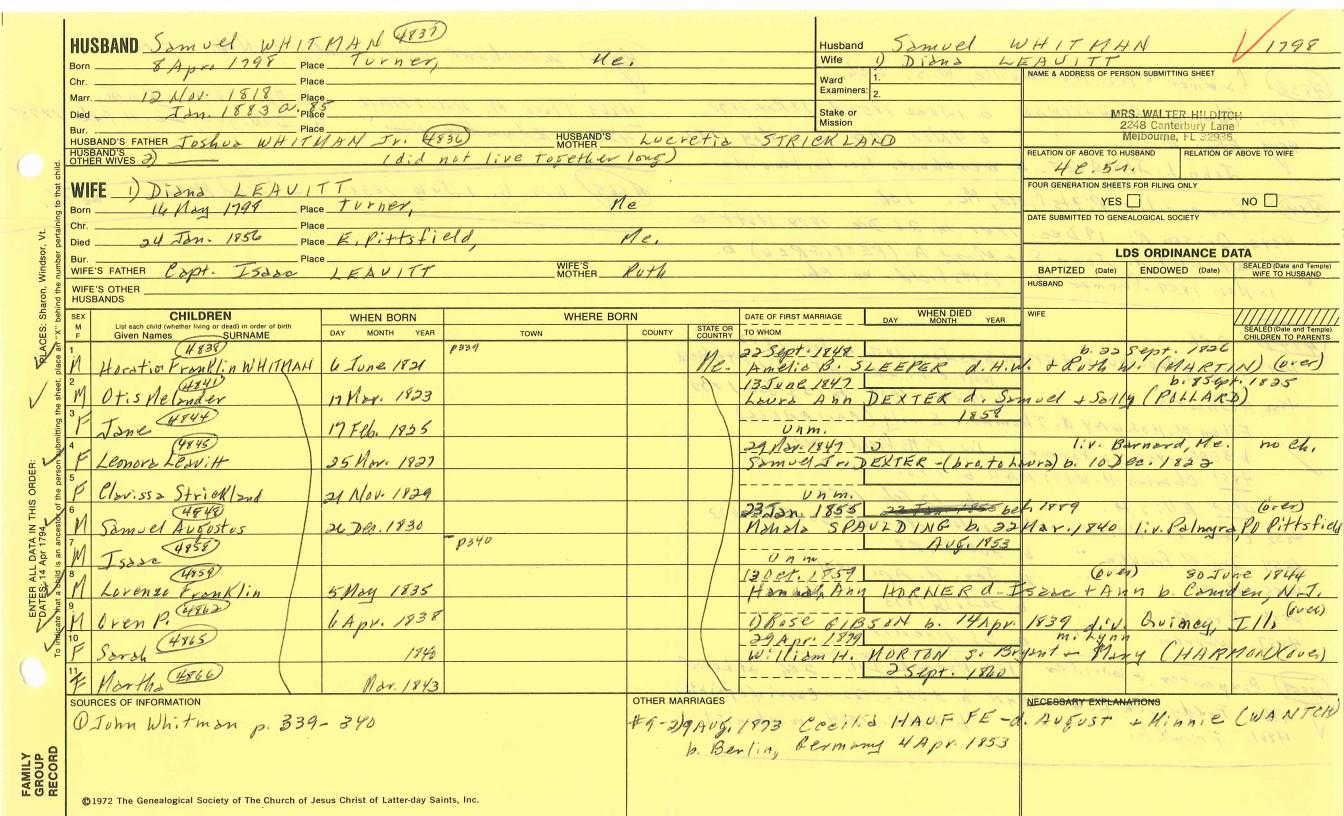 HUSBAND Samuel WHITMAN 4837
Born 8 Apr. 1798 Place Turner, Me.
Chr. Place
Marr. 12 Nov. 1818 Place
Died Jan. 1883 a. 85 Place
Bur. Place
HUSBAND'S FATHER Joshua WHITMAN Jr. 4836 HUSBAND'S MOTHER Lucretia STRICKLAND
HUSBAND'S OTHER WIVES 2) (did not live together long)
WIFE 1) Diana LEAVITT
Born 14 May 1798 Place Turner, Me
Chr. Place
Died 24 Jan. 1856 Place E. Pittsfield, Me.
Bur. Place
WIFE'S FATHER Capt. Isaac LEAVITT WIFE'S MOTHER Ruth
WIFE'S OTHER HUSBANDS
Husband Samuel WHITMAN 1798
Wife 1) Diana LEAVITT
Ward Examiners: 1. 2.
Stake or Mission
NAME & ADDRESS OF PERSON SUBMITTING SHEET
MRS. WALTER HILDITCH
2248 Canterbury Lane
Melbourne, FL 32935
RELATION OF ABOVE TO HUSBAND RELATION OF ABOVE TO WIFE
4c. 5r.
FOUR GENERATION SHEETS FOR FILING ONLY
YES NO
DATE SUBMITTED TO GENEALOGICAL SOCIETY
LDS ORDINANCE DATA
BAPTIZED (Date) ENDOWED (Date) SEALED (Date and Temple) WIFE TO HUSBAND
HUSBAND
WIFE
SEALED (Date and Temple) CHILDREN TO PARENTS
SEX M F CHILDREN WHEN BORN WHERE BORN DATE OF FIRST MARRIAGE WHEN DIED
List each child (whether living or dead) in order of birth
Given Names SURNAME DAY MONTH YEAR TOWN COUNTY STATE OR COUNTRY TO WHOM DAY MONTH YEAR
1 4838 p339 22 Sept. 1848 b. 22 Sept. 1826
M Horatio Franklin WHITMAN 6 June 1821 Me. Amelia B. SLEEPER d. H.W. + Ruth W. (MARTIN) (over)
2 4841 13 June 1847 b. 8 Sept. 1825
M Otis Melander 17 Mar. 1823 Laura Ann DEXTER d. Samuel + Sally (POLLARD)
3 4844 1858
F Jane 17 Feb. 1825 Unm.
4 4845 29 Mar. 1847 2 liv. Barnard, Me. no ch.
F Leonora Leavitt 25 Mar. 1827 Samuel Jr. DEXTER - (bro. to Laura) b. 10 Dec. 1822
5
F Clarissa Strickland 21 Nov. 1829 Unm.
6 4848 23 Jan. 1855 bef. 1889 (over)
M Samuel Augustus 26 Dec. 1830 Mahala SPAULDING b. 22 Mar. 1840 liv. Palmyra, PO Pittsfield
7 4858 p340 Aug. 1853
M Isaac Unm.
8 4859 12 Oct. 1859 (over) 30 June 1844
M Lorenzo Franklin 5 May 1835 Hannah Ann HORNER d. Isaac + Ann b. Camden, N.J.
9 4862 (over)
M Oren P. 6 Apr. 1838 1) Rose GIBSON b. 14 Apr. 1839 div. Quincy, Ill.
10 4865 29 Apr. 1879 m. Lynn
F Sarah 1840 William H. MORTON s. Bryant + Mary (HARMON) (over)
11 4866 2 Sept. 1860
F Martha Mar. 1843
SOURCES OF INFORMATION
① John Whitman p. 339-340
OTHER MARRIAGES
#9-2) 9 Aug. 1873 Cecilia HAUFFE - d. August + Minnie (WANTCH)
b. Berlin, Germany 4 Apr. 1853
NECESSARY EXPLANATIONS
©1972 The Genealogical Society of The Church of Jesus Christ of Latter-day Saints, Inc.
FAMILY GROUP RECORD
ENTER ALL DATA IN THIS ORDER:
DATES: 14 Apr 1794 PLACES: Sharon, Windsor, Vt.
To indicate that a child is an ancestor of the person submitting the sheet, place an "X" behind the number pertaining to that child.